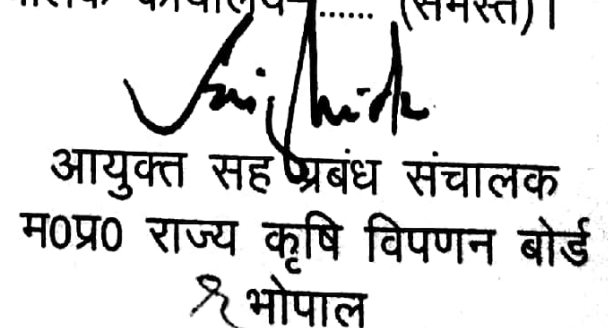 कार्यालय-...... (समस्त)।
आयुक्त सह प्रबंध संचालक
म0प्र0 राज्य कृषि विपणन बोर्ड
भोपाल